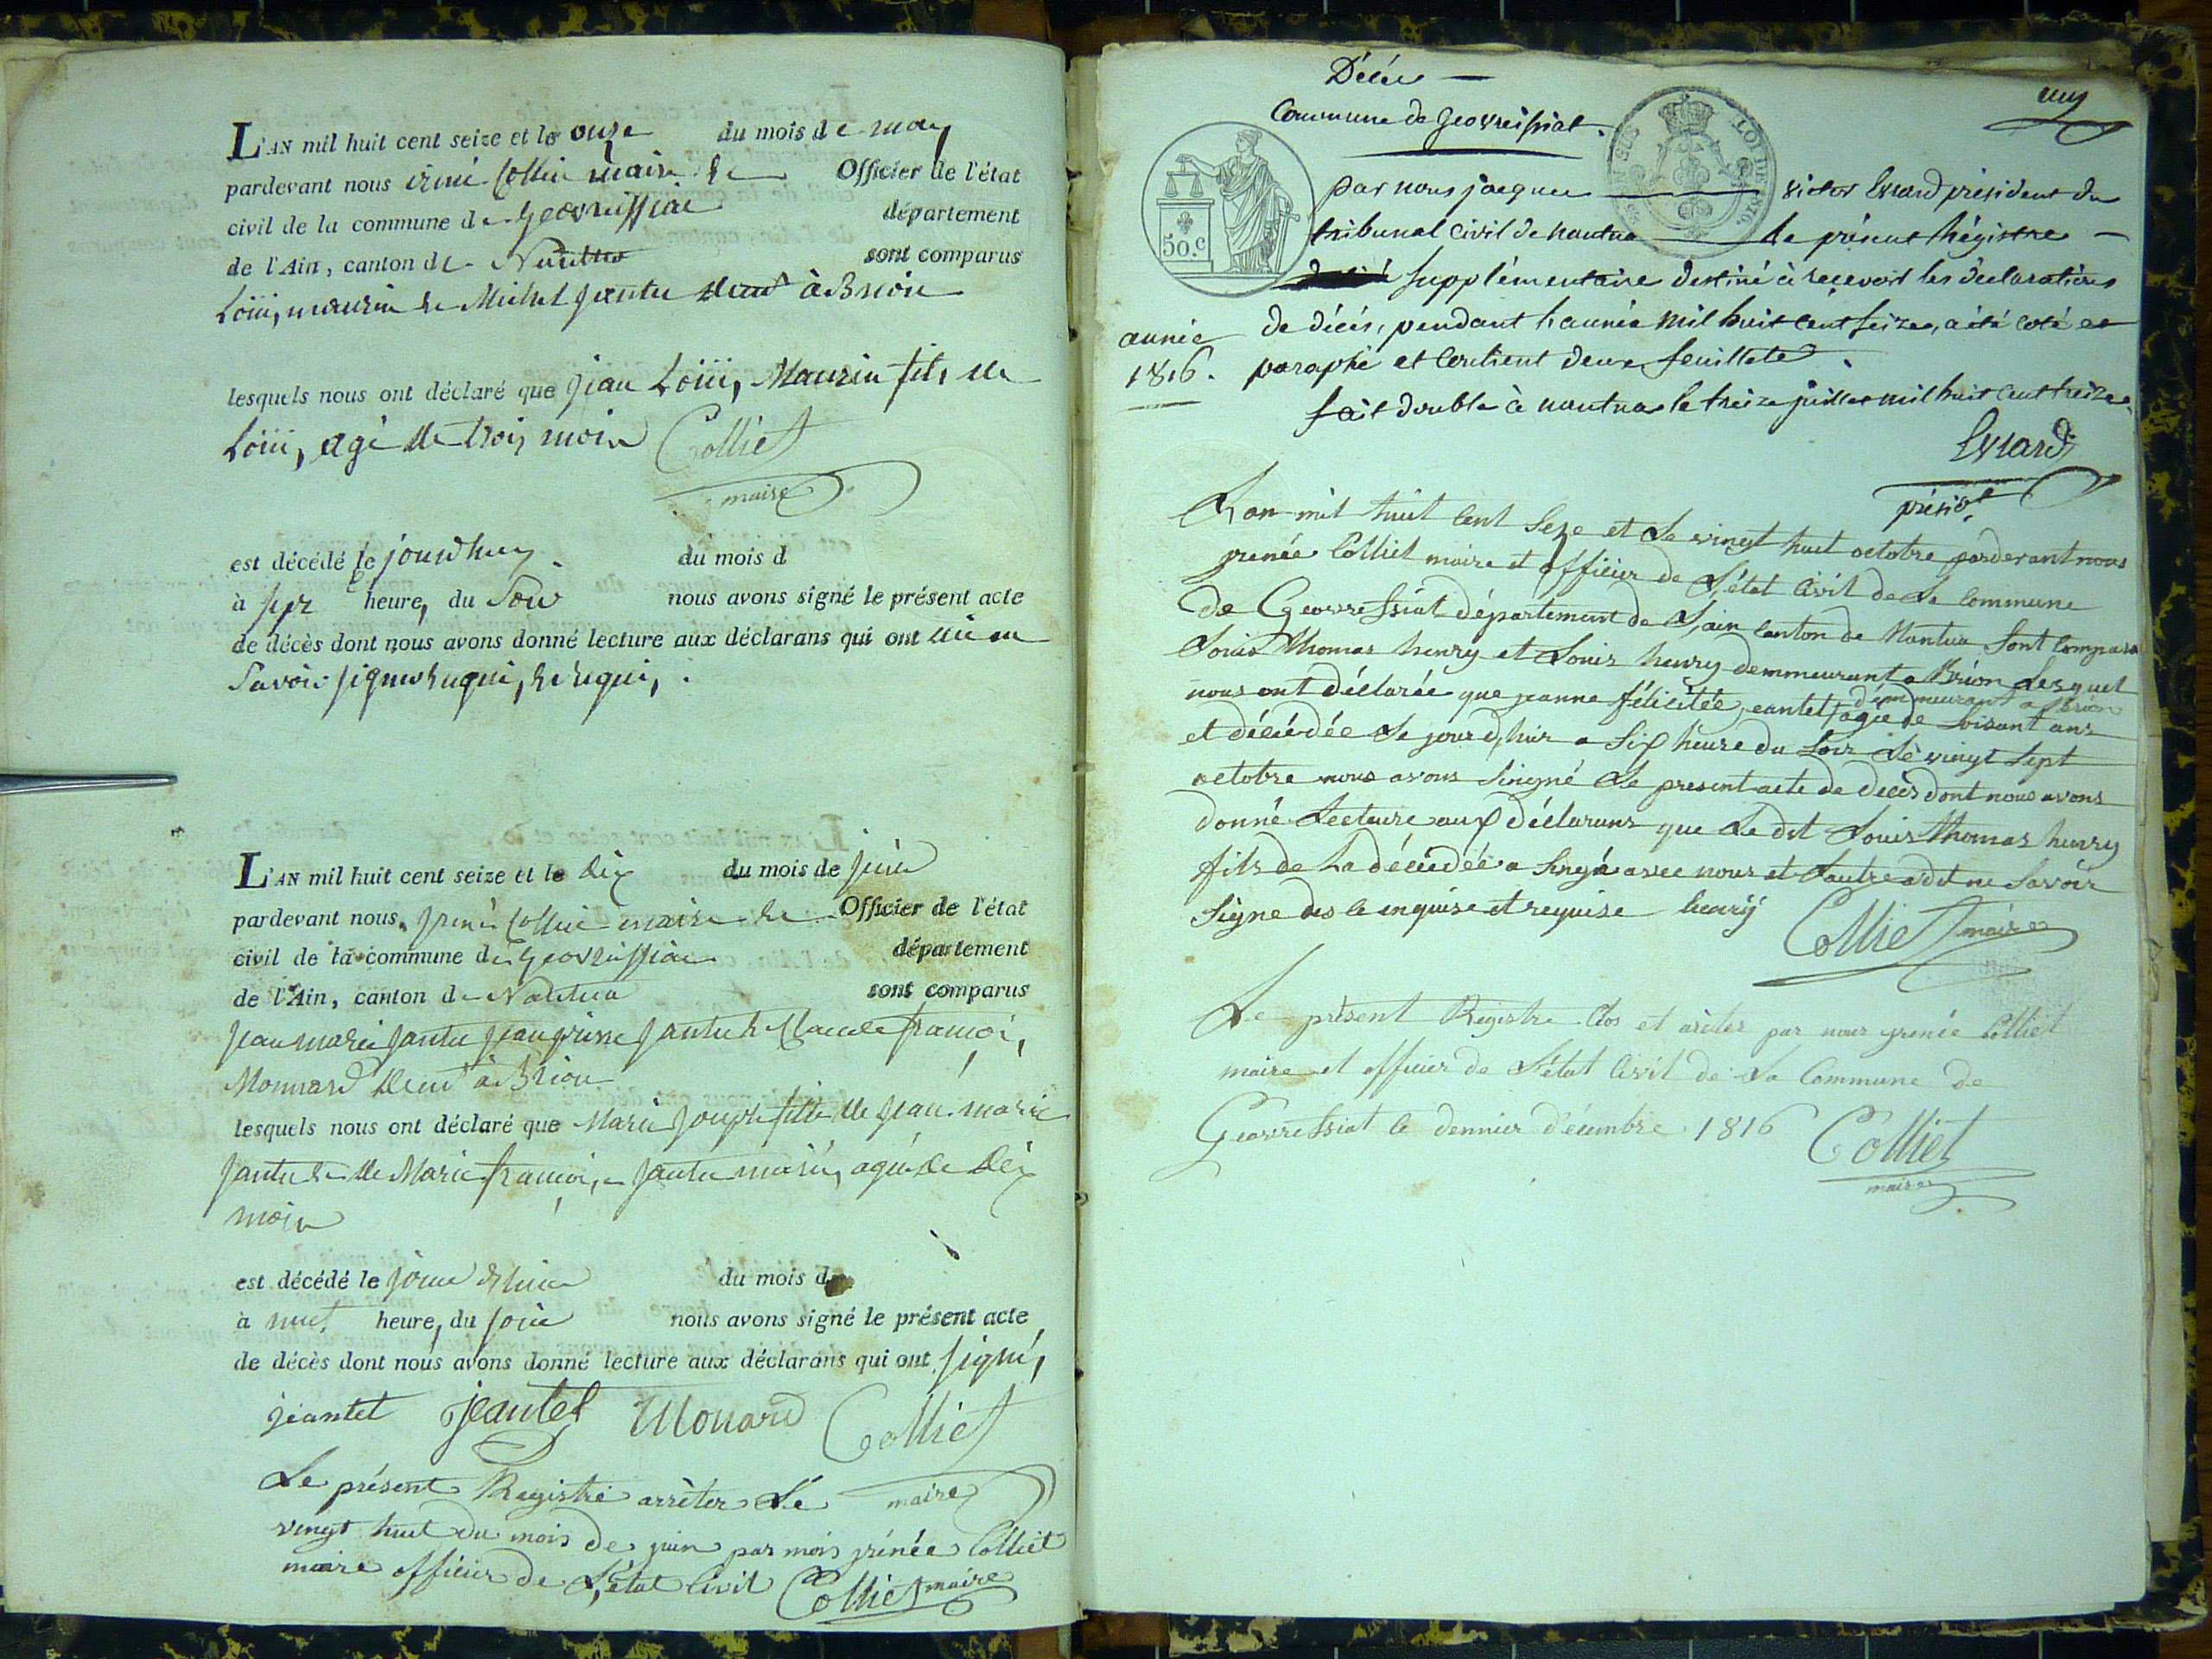 L'AN mil huit cent seize et le onze du mois de may
pardevant nous irené Colliet maire & Officier de l'état
civil de la commune de Geovreissiat département
de l'Ain, canton de Nantua sont comparus
Loüi, maurin & Michel Jantet à Brion
lesquels nous ont déclaré que jean Loüi, Maurin fils de
Loüi, agé de trois mois Colliet
maire
est décédé le jourdhuy du mois d
à sept heure, du Soir nous avons signé le présent acte
de décès dont nous avons donné lecture aux déclarans qui ont dit ne
Savoir signer
L'AN mil huit cent seize et le dix du mois de juin
pardevant nous irené Colliet maire & Officier de l'état
civil de la commune de Geovreissiat département
de l'Ain, canton de Nantua sont comparus
jean marie jantet & Claude françoi,
Monnard à Brion
lesquels nous ont déclaré que Marie fille de jean marie
jantet & de Marie françoi, jantet agée de dix
mois
est décédé le jour du mois d
à heure, du soir nous avons signé le présent acte
de décès dont nous avons donné lecture aux déclarans qui ont signé,
jeantet jeantet Monard Colliet
Le présent Registre arrèter Le maire
vingt huit du mois de juin par mois jrénée Colliet
maire officier de L'état Civil Colliet maire
Décés
Commune de Geovreissiat.
un
TIMBRE LOI DE 1816.
50. c
par nous jacques victor Evrard président du
tribunal civil de nantua le présent Régistre
supplémentaire destiné à recevoir les déclarations
année de décés, pendant l'année mil huit cent seize, a été coté et
1816. paraphé et contient deux feuillets.
fait double à nantua le treize juillet mil huit cent seize.
Evrard
présidt
L'an mil huit cent seze et Le vingt huit octobre pardevant nous
jrenée Colliet maire et officier de L'état Civil de La Commune
de Geovressiat département de L'ain canton de Nantua Sont Comparu
Louis Thomas henry et Louis henry demmeurant a Brion Lesquel
nous ont déclarée que jeanne félicitée jeantet demmeurant a Brion agée de soisant ans
et décédée Le jourd'huis a Six heure du Soir Le vingt Sept
octobre nous avons Singné Le present acte de décés dont nous avons
donné Lecteure aux déclarans que Le dit Louis Thomas henry
fils de La décédée a Singné avec nous et L'autre a dit ne Savoir
Signe des ce enquise et requise henrÿ Colliet maire
Le présent Registre Clos et arèter par nous jrenée Colliet
maire et officier de L'état Civil de La Commune de
Geovressiat le dernier décembre 1816 Colliet
maire